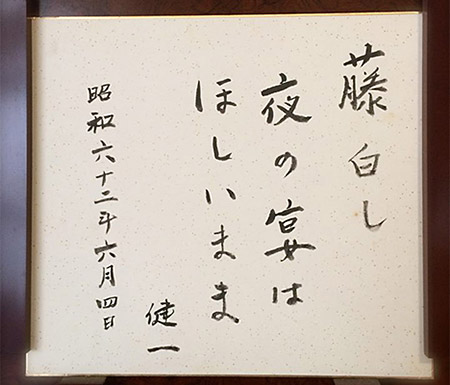 藤白し
夜の宴は
ほしいまま
健一
昭和六十二年六月四日